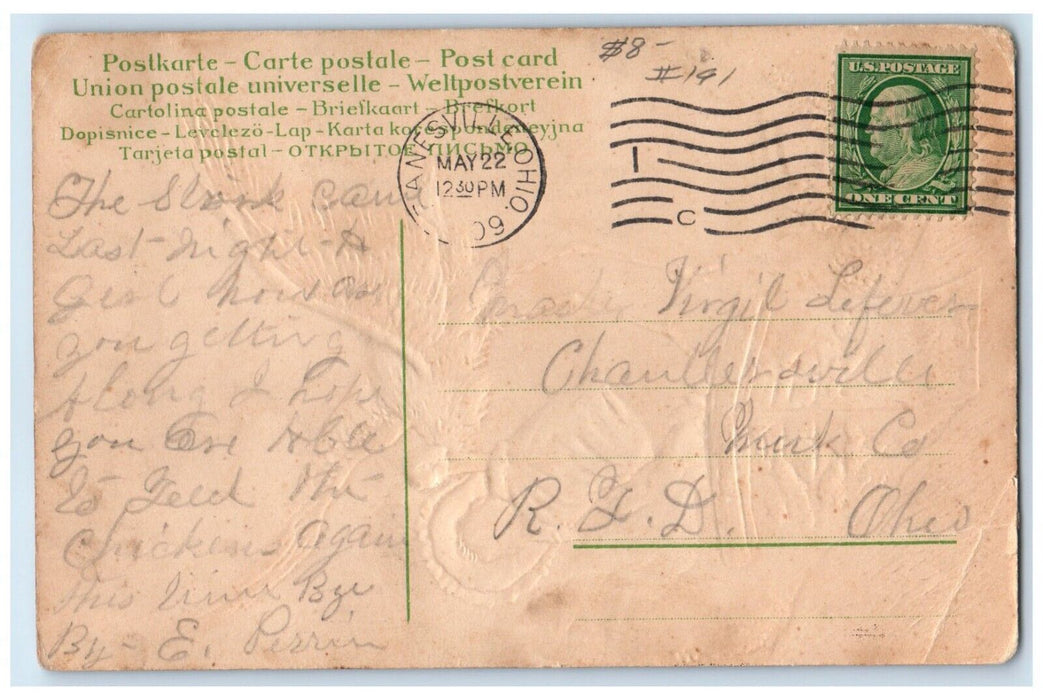 Postkarte – Carte postale – Post card
Union postale universelle – Weltpostverein
Cartolina postale – Briefkaart – Brefkort
Dopisnice – Levelező-Lap – Karta korespondencyjna
Tarjeta postal – ОТКРЫТОЕ ПИСЬМО
$8-
#191
ZANESVILLE, OHIO.
MAY 22
12 30 PM
09
1
C
U.S. POSTAGE
ONE CENT
The Stork Cam
Last Night A
Girl how are
you getting
Along I Hope
you Are Able
to Feed the
Chickens Again
this time Bye
By – E. Perrin
Master Virgil Lefever
Chandlersville
Musk Co
R.F.D. Ohio